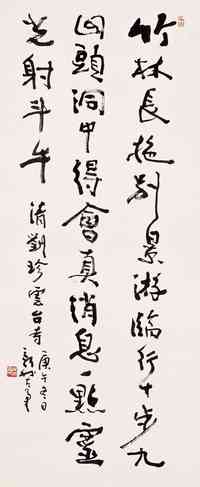 竹林長挹别景游臨行十步九
回頭洞中得會真消息一點靈
光射斗牛
清劉珍雲台寺
庚午冬日